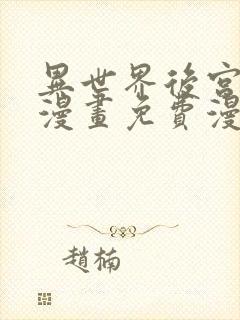 異世界後宮
漫畫免費漫
趙楠